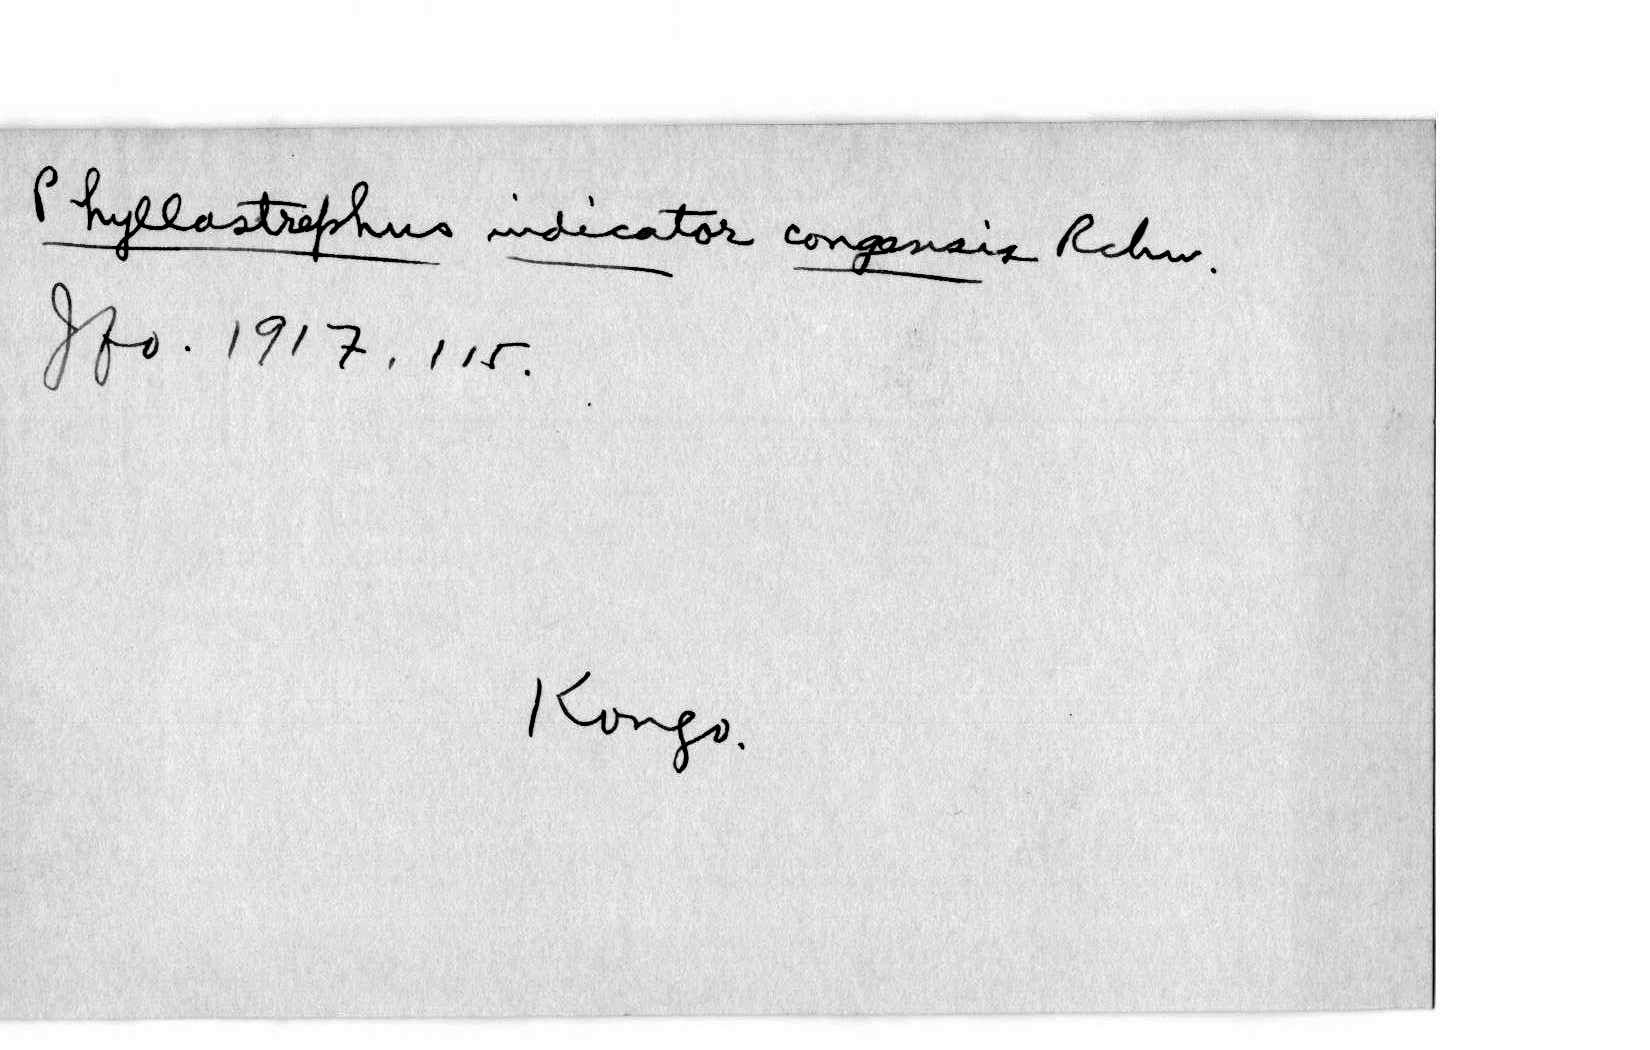 Phyllastrephus indicator congensis Rchw.
Jfo. 1917, 115.
Kongo.